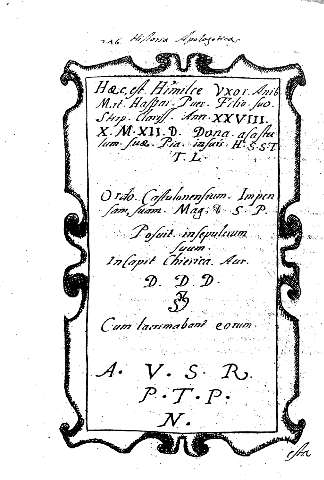 226 Historia Apologetica
Hæc, est Himilce Vxor. Anib
M. et. Haspai. Puer. Filio. suo
Stirp. Clariss. Ann. XXVIII.
X. M. XII. D. Dona. a sastu
lum suæ. Pia. in suis. H. S. S T
T. L.
Ordo. Castulonensium. Impen
sam, suam. Mag. & S. P.
Posuit. in sepulcrum
suum.
Inscapit Chierica. Aur.
D. D. D.
Cum lacrimabani eorum.
A. V. S. R.
P. T. P.
N.
esta